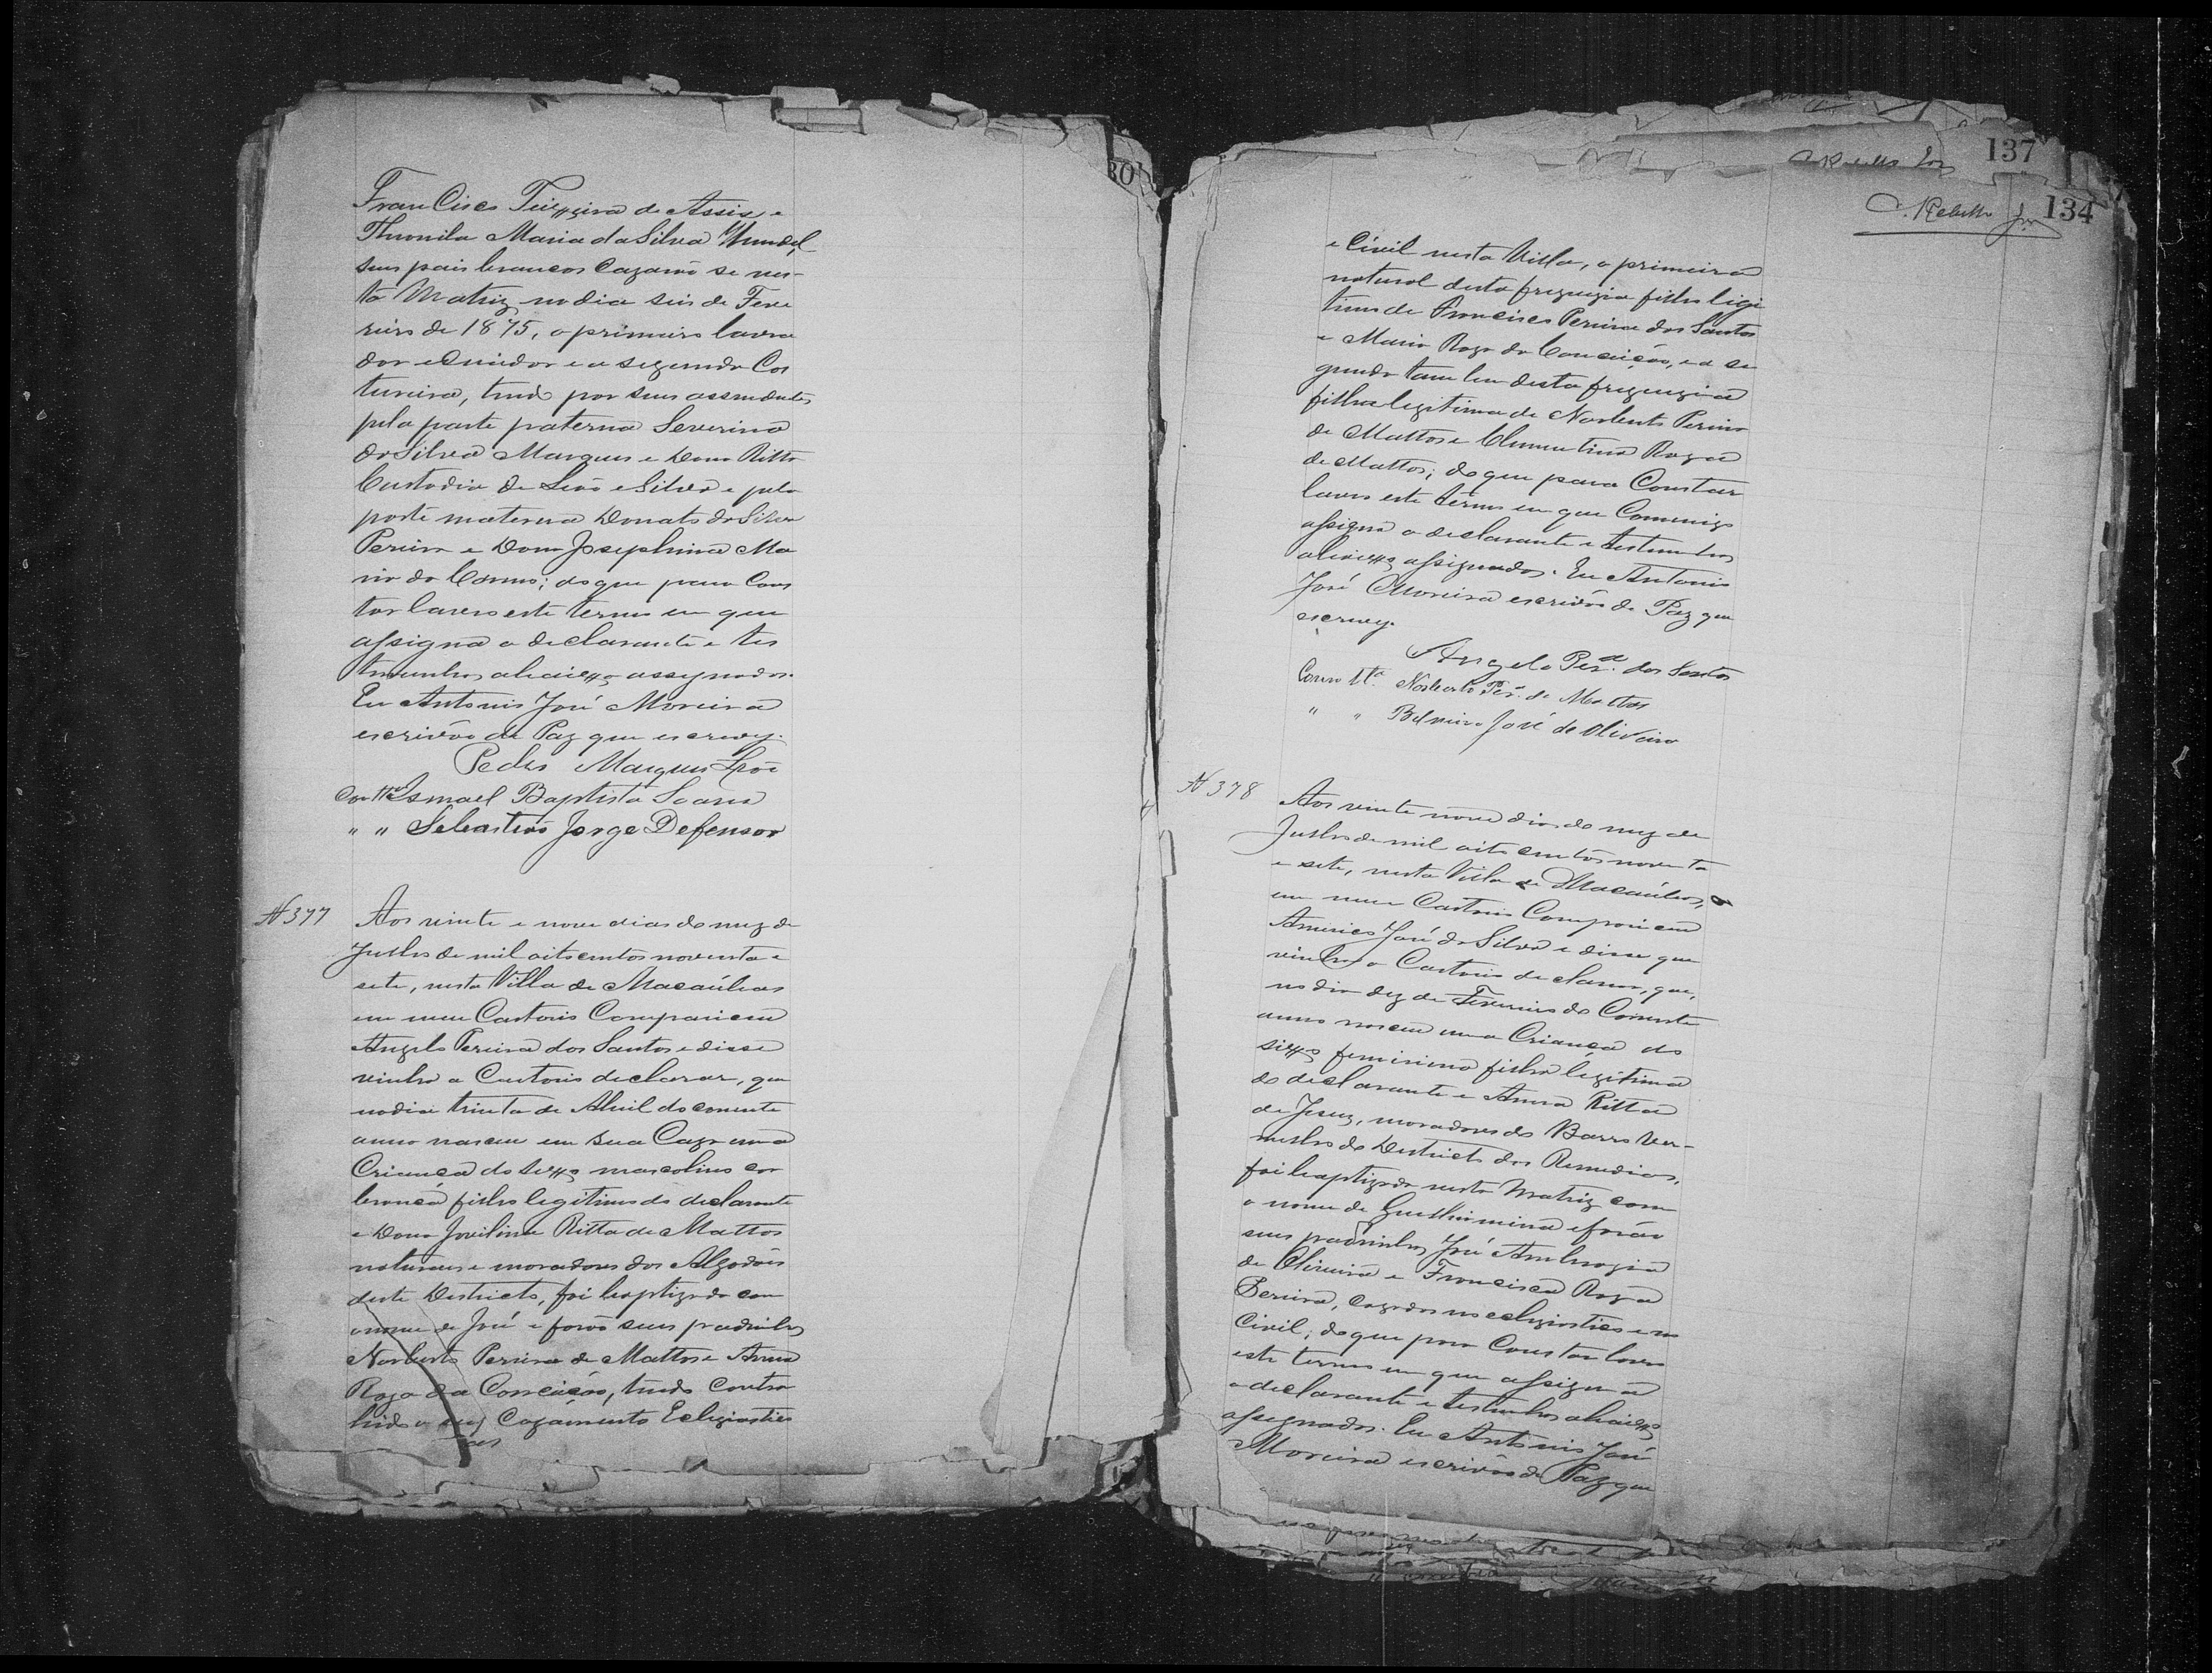 Francisco Teixeira de Assis, e
Theonila Maria da Silva
seus pais brancos cazarão se nes-
ta Matriz no dia seis de Feve
reiro de 1875, o primeiro lavra
dor e Criador e a segunda Cos
tureira, tendo por seus assendentes
pela parte paterna Severino
da Silva Marques e Dona Ritta
Custodia de Leão e Silva e pela
parte materna Donato da Silva
Pereira e Dona Josephina Ma
ria do Carmo; do que para Cons
tar lavro este termo em que
assigna o declarante e tes
temunhas abaixo assignados.
Eu Antonio José Moreira
escrivão de Paz que escrevy.
Pedro Marques Leão
Como tta Ismael Baptista Soares
" " Sebastião Jorge Defensor
N 377
Aos vinte e nove dias do mez de
Julho de mil oitocentos noventa e
sete, nesta Villa de Macaúbas
em meu Cartorio Compariceu
Angelo Pereira dos Santos e disse
vinha a Cartorio declarar, que
no dia trinta de Abril do corrente
anno nasceu em sua Caza uma
Criança do sexo mascolino cor
branca filho legitimo do declarante
e Dona Jovilina Ritta de Mattos
naturaes e moradores dos Algodões
deste Destricto, foi baptizado com
o nome de José e forão seus padrinhos
Norberto Pereira de Mattos e Anna
Roza da Conceição, tendo Contra
hido o seu Cazamento Ecleziastico
30
137
134
Rebello Jor
e Civil nesta Villa, o primeiro
natural desta freguezia filho ligi
timo de Francisco Pereira dos Santos
e Maria Roza da Conceição, e a se
gunda tambem desta freguezia
filha legitima de Norberto Pereira
de Mattos e Clementina Roza
de Mattos; do que para Constar
lavro este termo em que Commigo
assigna o declarante e testemunhas
abaixo assignados. Eu Antonio
José Moreira escrivão de Paz que
escrevy.
Angelo Perª. dos Santos
Como ttª. Norberto Perª. de Mattos
" " Belmiro José de Oliveira
N 378
Aos vinte nove dias do mez de
Julho de mil oito centos noventa
e sete, nesta Villa de Macaúbas,
em meu Cartorio Compariceu
Americo José da Silva e disse que
vinha a Cartorio declarar, que,
no dia dez de Fevereiro do Corrente
anno nasceu uma Criança do
sexo feminino filha legitima
do declarante e Anna Ritta
de Jesus, moradores do Barro Ver-
melho do Destricto dos Remedios,
foi baptizada nesta Matriz com
o nome de Guilhirmina e forão
seus padrinhos José Ambrozio
de Oliveira e Francisca Roza
Pereira, cazados no eclesiastico e no
Civil; do que para Constar lavro
este termo em que assigna
o declarante e testemunhas abaixo
assignados. Eu Antonio José
Moreira escrivão de Paz que